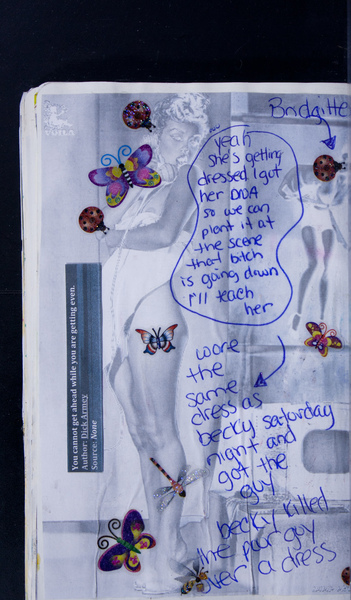 VOILA
Bridgitte
yeah
she's getting
dressed I got
her DNA
so we can
plant it at
the scene
that bitch
is going down
I'll teach
her
You cannot get ahead while you are getting even.
Author: Dick Armey
Source: None
wore
the
same
dress as
becky saturday
night and
got the
guy
becky killed
the poor guy
over a dress